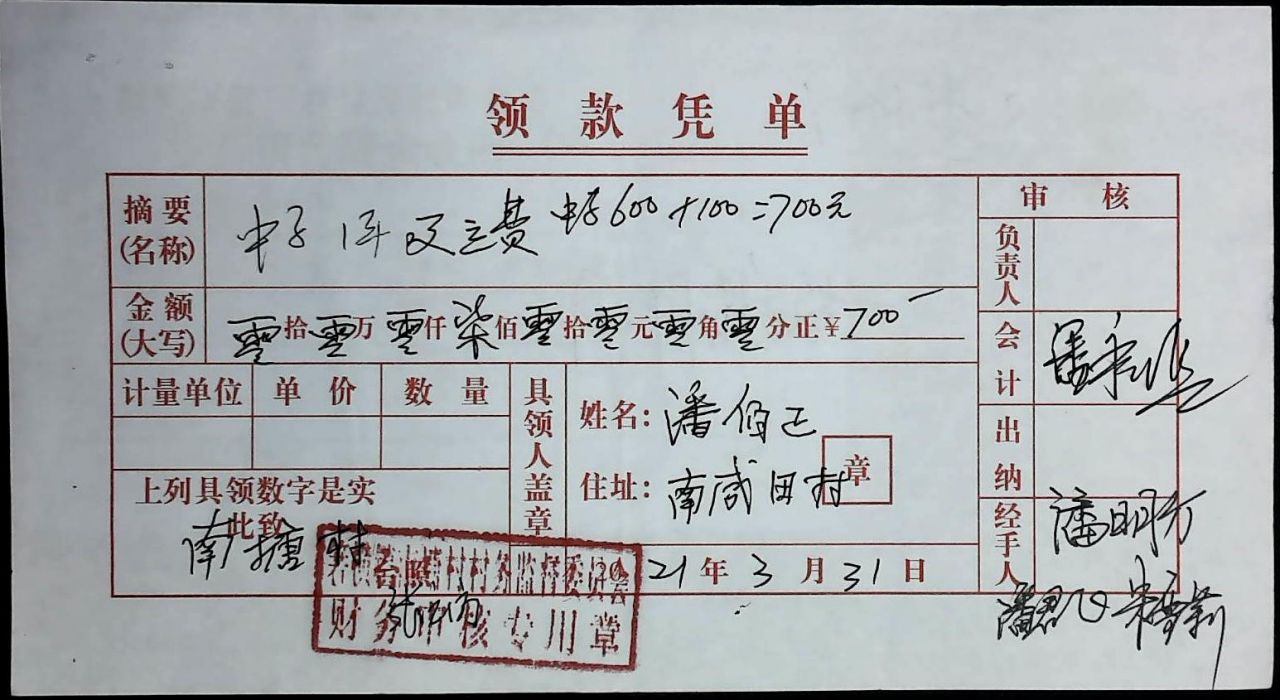 领款凭单
摘要(名称)
中子 中子600+100=700元
审核
负责人
金额(大写) 零拾零万零仟柒佰零拾零元零角零分正¥700
会计
计量单位 单价 数量
具领人盖章
姓名:潘伯正
住址:南咸田村
章
出纳
上列具领数字是实
此致
南塘村
经手人
潘明方
台照
2021年3月31日
村村务监督委员会
财务审核专用章
潘君飞